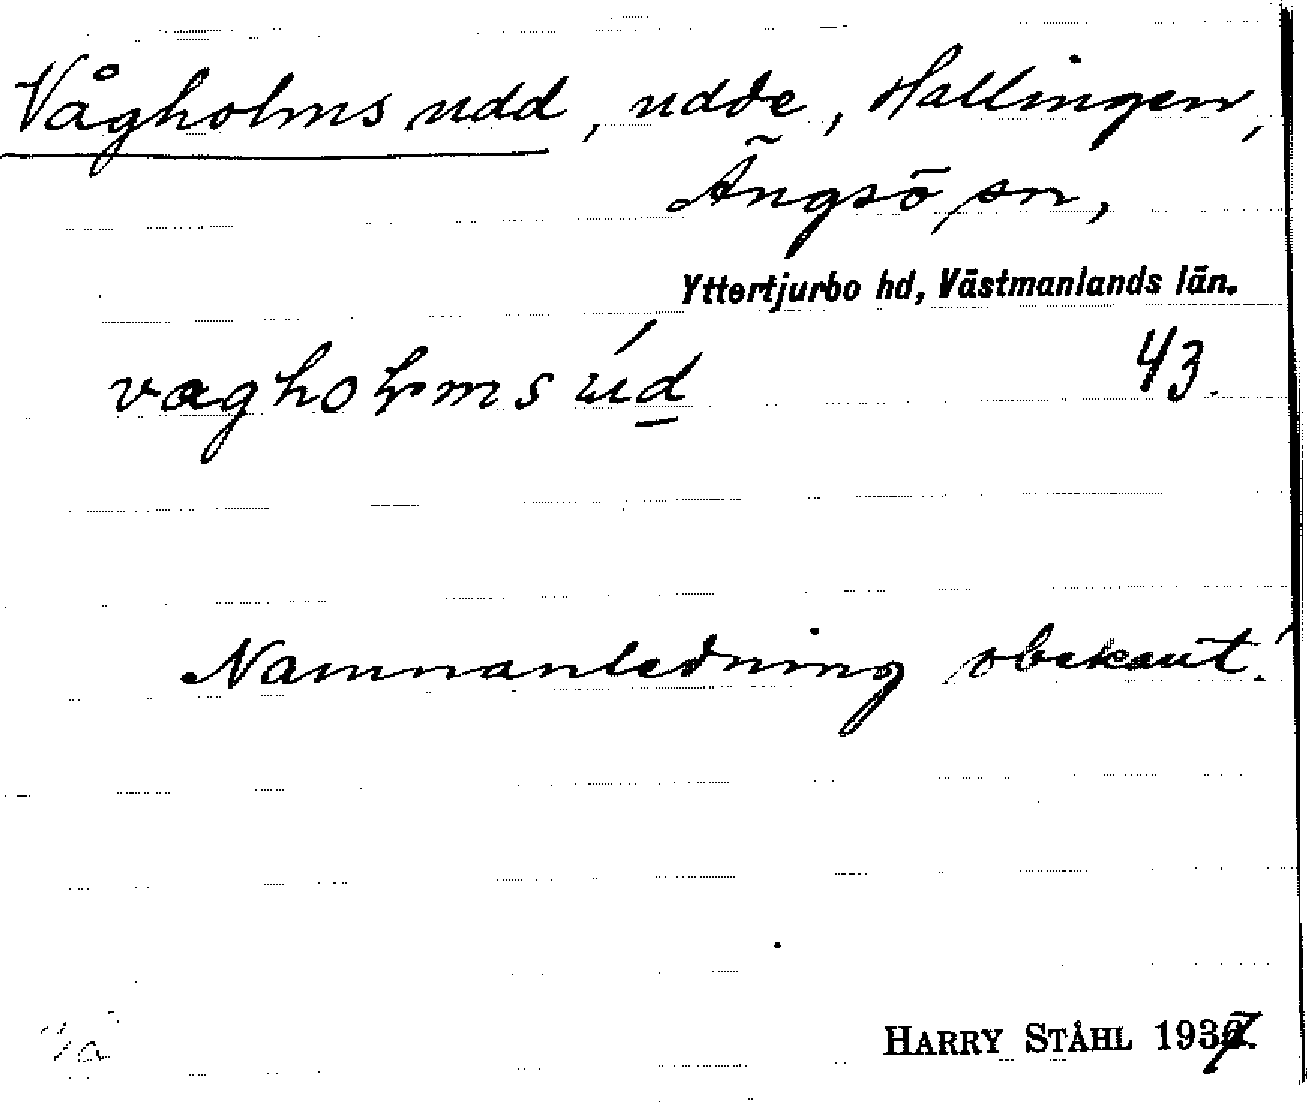 Vågholmsudd, udde, Hallingen,
Ängsö sn,
Yttertjurbo hd, Västmanlands län.
vagholmsúd 43.
Namnanledning obekant.
HARRY STÅHL 1937.